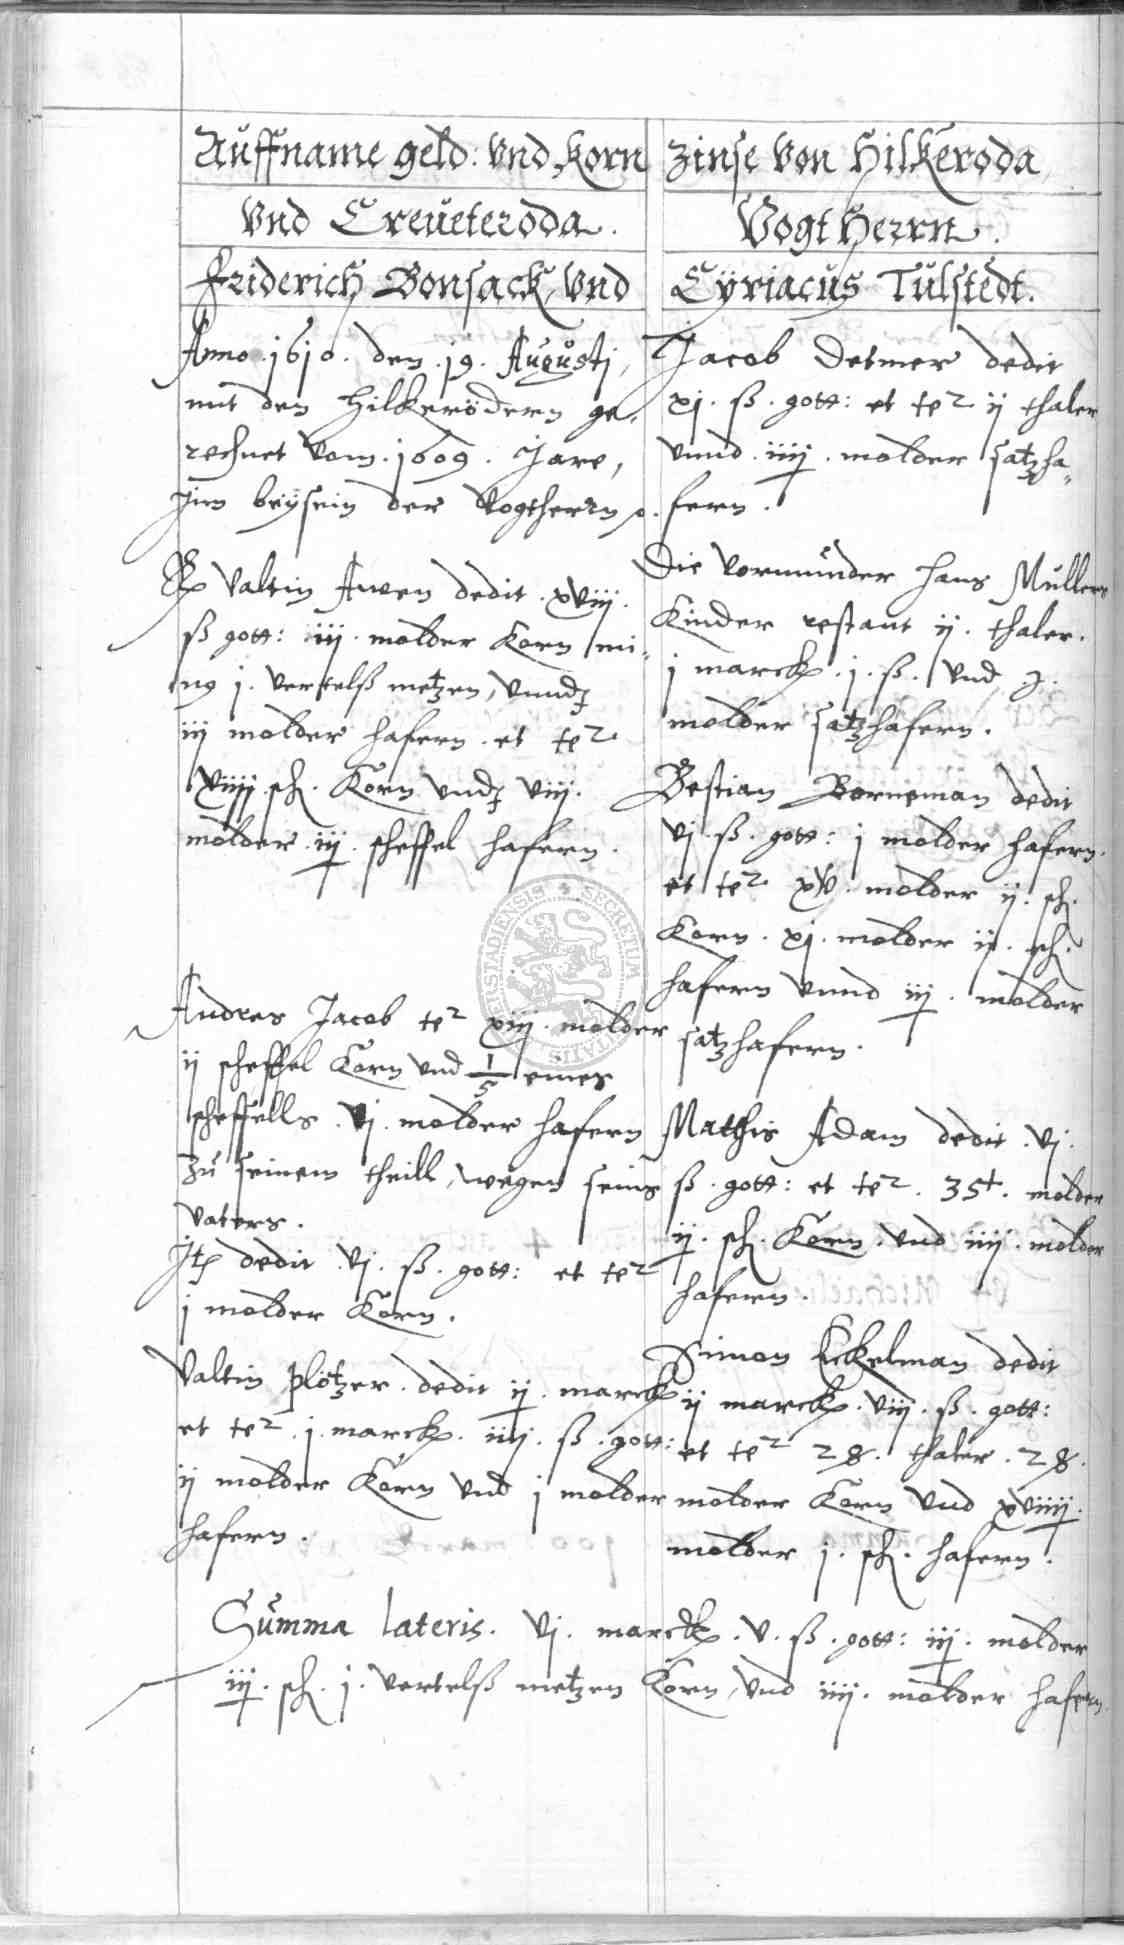 Auffname geld: vnd korn zinse von Hilkeroda
vnd Creueteroda. VogtHerrn.
Friderich Bonsack, vnd Cyriacus Tulstedt.
Anno .1610. den .19. Augusti,
mit den Hilkerödern ge,
rechnet vom .1609. Jare,
Jim beysein der Vogtherrn
Valtin Awen dedit .xviij.
ß gott: iij. molder Korn mi=
ng j. vertelß metzen, vnnd
iij molder hafern. et te2
xiiij sch. Korn vnnd viij.
molder .iij. scheffel hafern.
Andres Jacob te2 xiij. molder
ij scheffel Korn vnd 1/5 eines
scheffells .vj. molder hafern
zu seinem theill, wegen seins
vaters.
Jt dedit .vj. ß. gott: et te2
j molder Korn.
Valtin Plötzer. dedit ij. marck
et te2 .j. marck. iiij. ß. gott:
ij molder Korn vnd j molder
hafern.
Jacob Detmer dedit
xj. ß. gott: et te2 ij thaler
vnnd .iiij. molder satzha=
fern.
Die vormunder Hans Mullers
Kinder restant ij. thaler.
j marck .j. ß. vnd .j.
molder satzhafern.
Bestian Borneman dedit
vj. ß. gott: j molder hafern.
et te2 xv. molder ij. sch.
Korn. xj. molder ij. sch.
hafern vnnd iij. molder
satzhafern.
Mathis Adam dedit .vj.
ß. gott: et te2. 35+. molder
ij. sch. Korn. vnd iiij. molder
hafern.
Simon Eckelman dedit
ij marck. viij. ß. gott:
et te2 28. thaler. 28.
molder Korn vnd xviiij.
molder j. sch. hafern.
Summa lateris. vj. marck .v. ß. gott: iij. molder
iij. sch. j. vertelß metzen Korn, vnd iiij. molder hafern.
SECRETUM